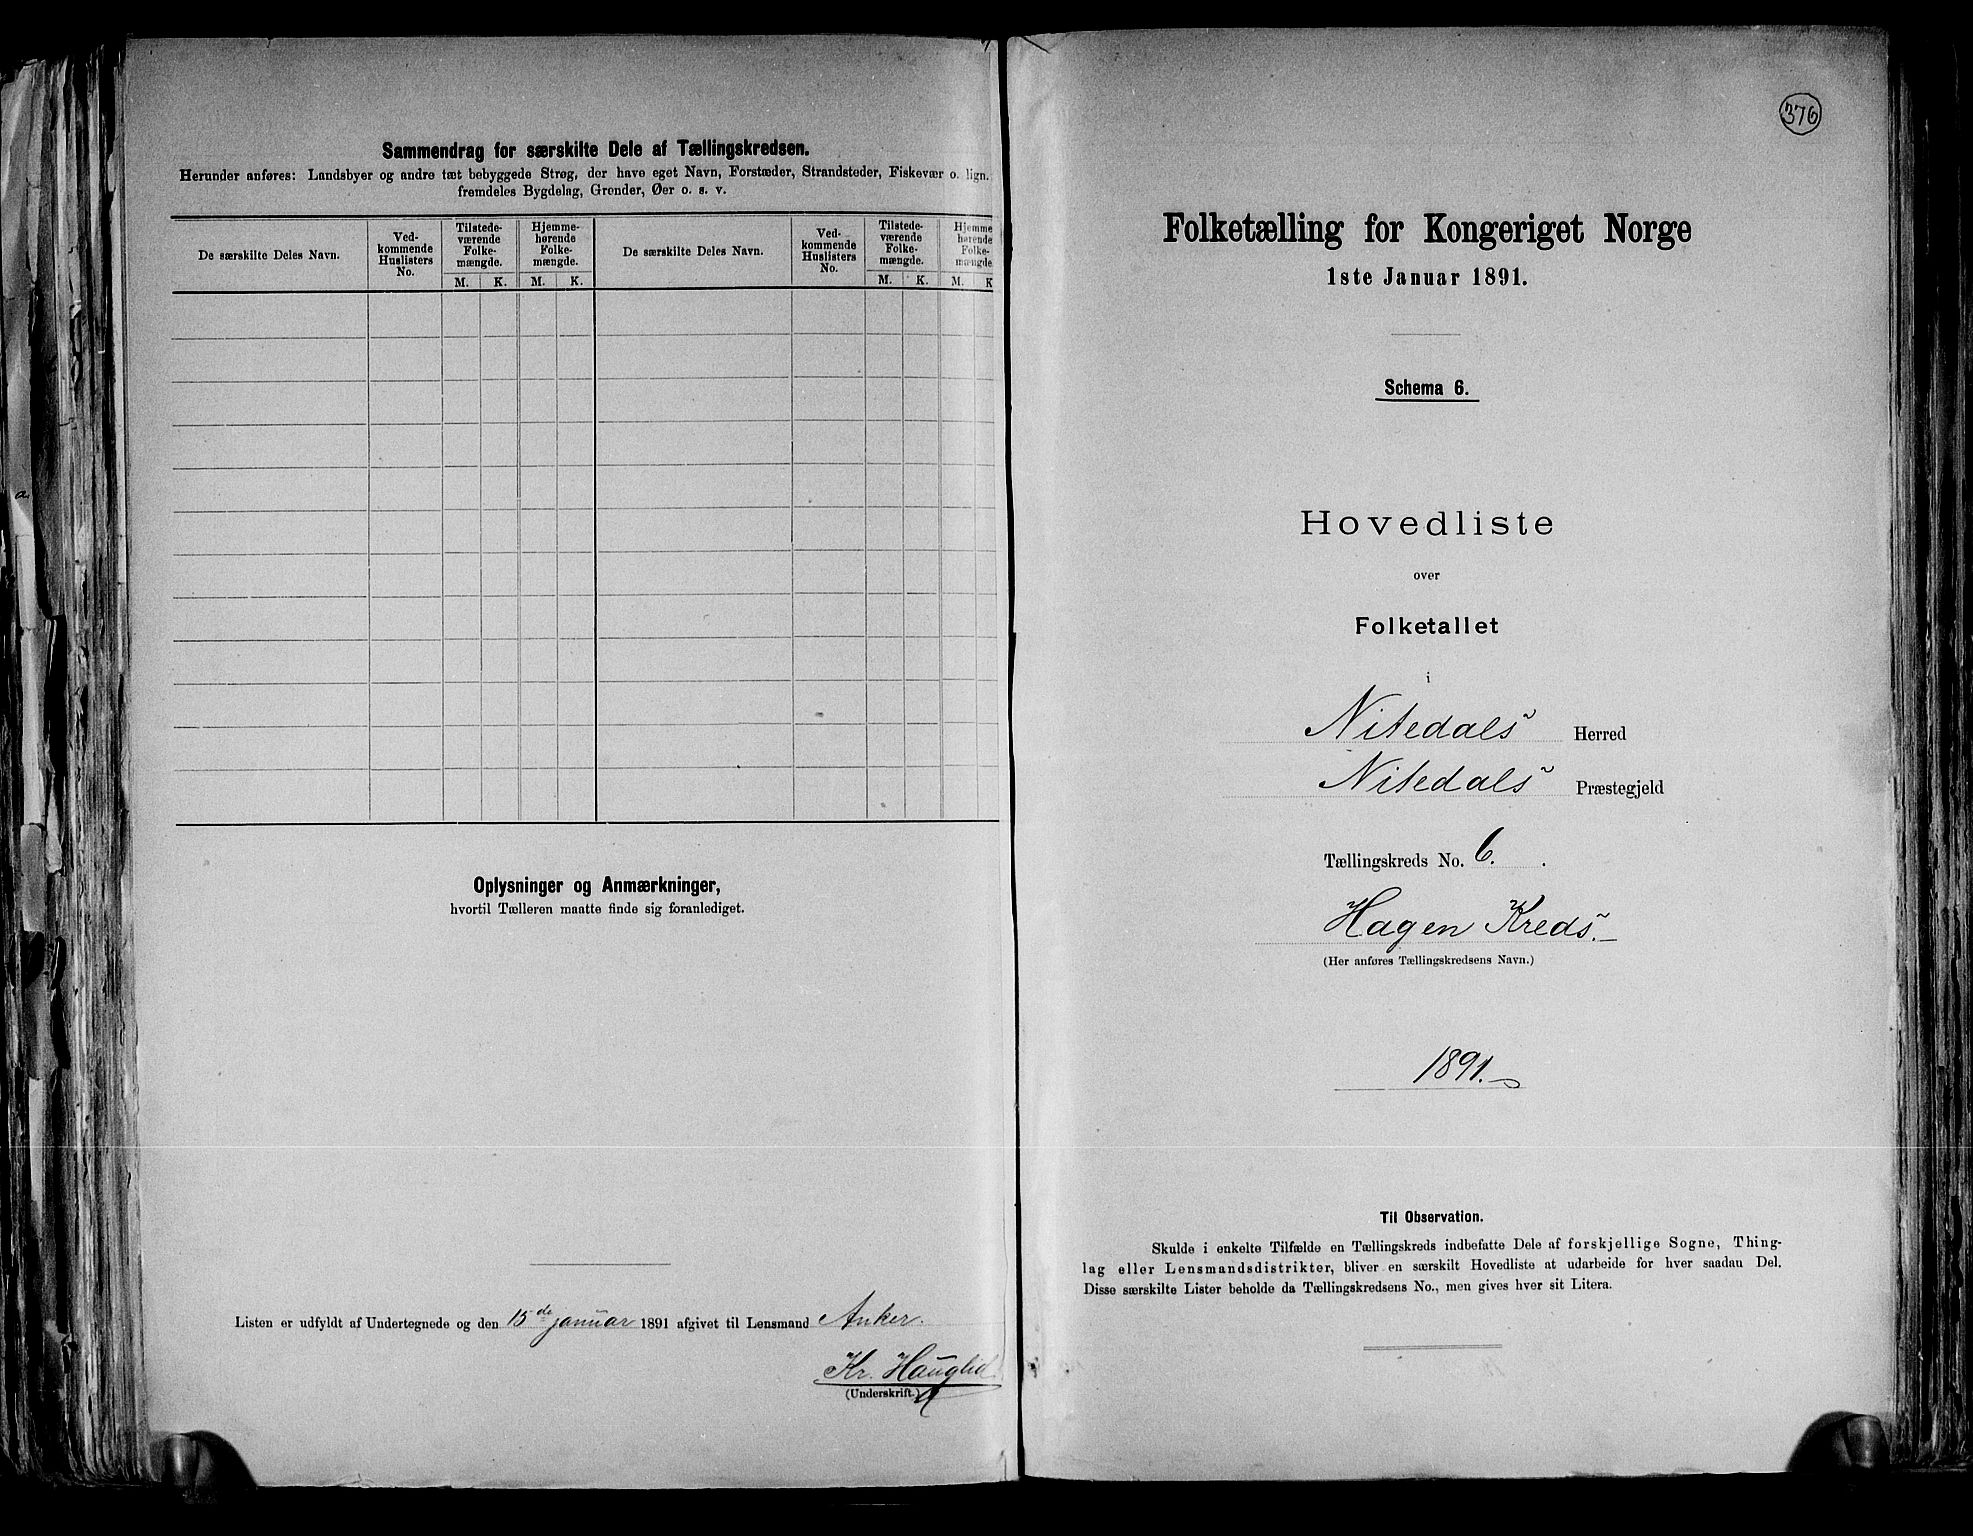 Sammendrag for særskilte Dele af Tællingskredsen.
Herunder anføres: Landsbyer og andre tæt bebyggede Strøg, der have eget Navn, Forstæder, Strandsteder, Fiskevær o. lign.
fremdeles Bygdelag, Grender, Øer o. s. v.
De særskilte Deles Navn.
Ved-
kommende
Huslisters
No.
Tilstede-
værende
Folke-
mængde.
M. K.
Hjemme-
hørende
Folke-
mængde.
M. K.
De særskilte Deles Navn.
Ved-
kommende
Huslisters
No.
Tilstede-
værende
Folke-
mængde.
M. K.
Hjemme
hørende
Folke-
mængde
M. K
Oplysninger og Anmærkninger,
hvortil Tælleren maatte finde sig foranlediget.
Listen er udfyldt af Undertegnede og den 15de januar 1891 afgivet til Lensmand Anker.
Kr. Hauglid
(Underskrift.)
376
Folketælling for Kongeriget Norge
1ste Januar 1891.
Schema 6.
Hovedliste
over
Folketallet
i
Nitedals Herred
Nitedals Præstegjeld
Tællingskreds No. 6.
Hagen Kreds.
(Her anføres Tællingskredsens Navn.)
1891.
Til Observation.
Skulde i enkelte Tilfælde en Tællingskreds indbefatte Dele af forskjellige Sogne, Thing-
lag eller Lensmandsdistrikter, bliver en særskilt Hovedliste at udarbeide for hver saadan Del.
Disse særskilte Lister beholde da Tællingskredsens No., men gives hver sit Litera.